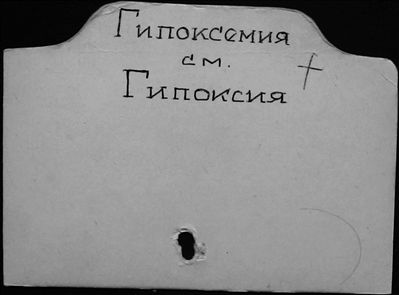 Гипоксемия
см.
Гипоксия